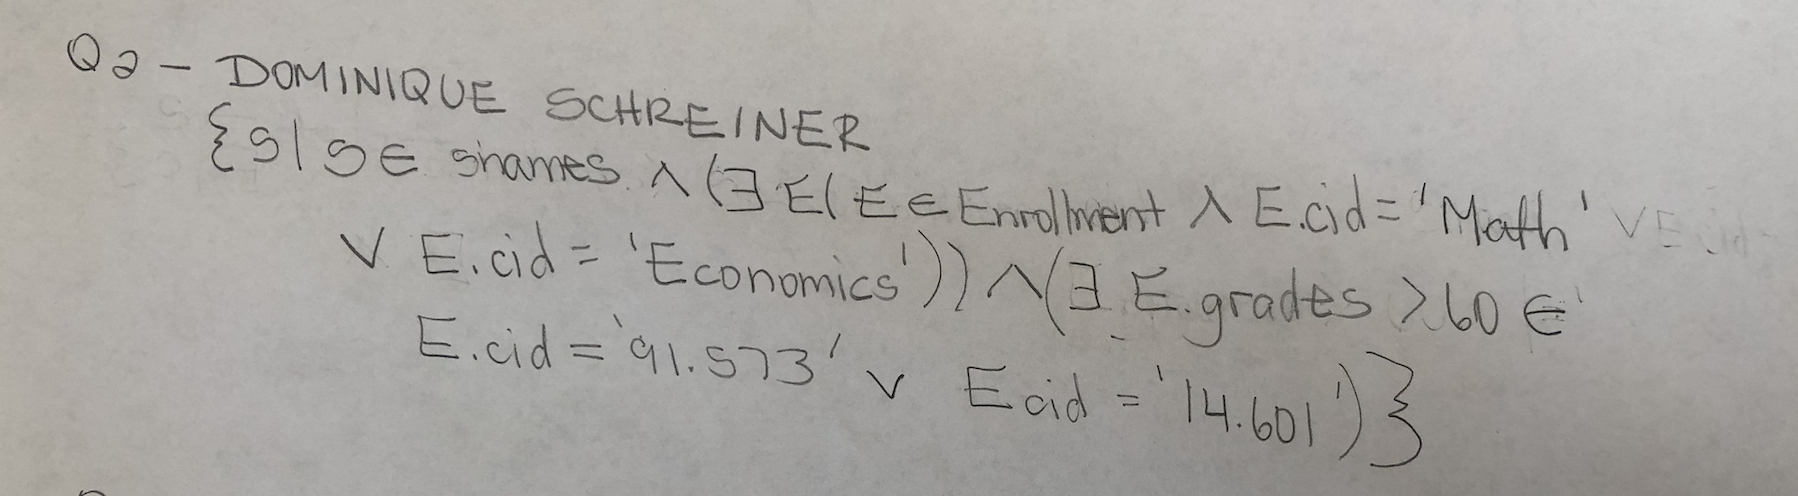 Q2 - DOMINIQUE SCHREINER
{S | S ∈ snames ∧ (∃ E( E ∈ Enrollment ∧ E.cid = 'Math' ∨ E.cid
∨ E.cid = 'Economics')) ∧ (∃ E.grades > 60 ∈
E.cid = '91.573' ∨ E cid = '14.601')}